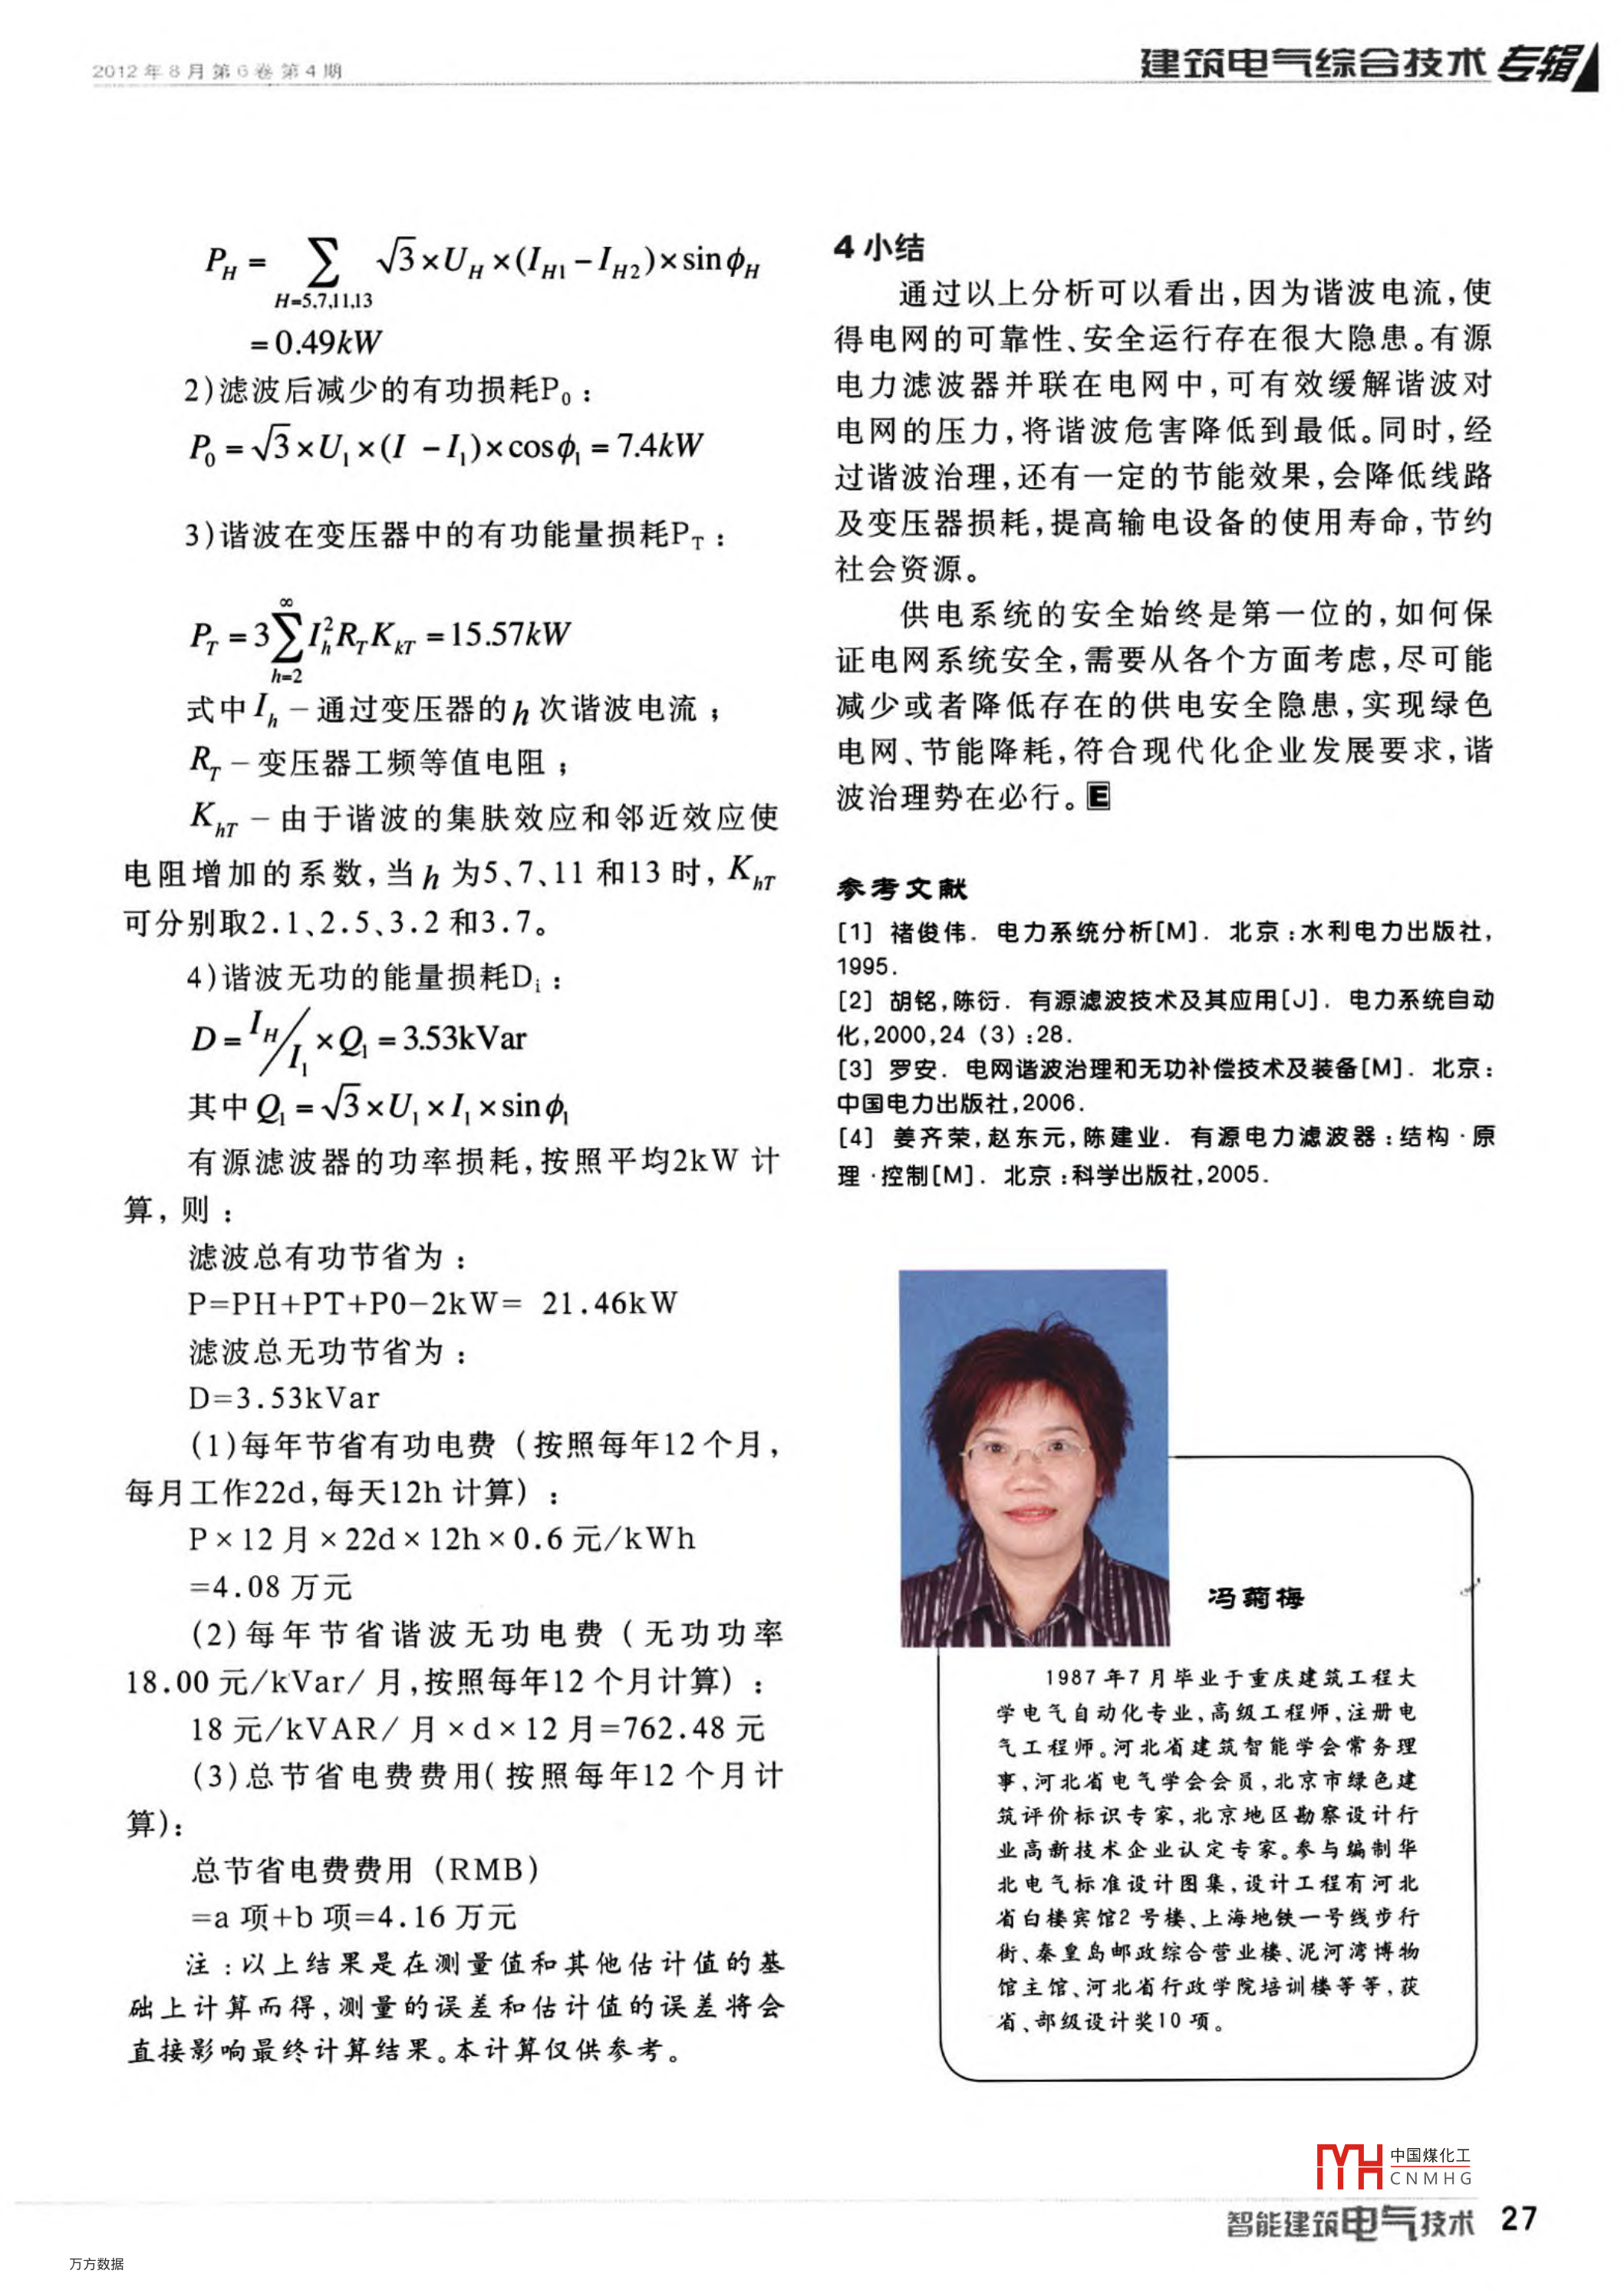 2012年8月第6卷第4期
建筑电气综合技术 专辑
P_H = ∑_{H=5,7,11,13} √3×U_H×(I_{H1}−I_{H2})×sinϕ_H
=0.49kW
2)滤波后减少的有功损耗P₀：
P₀=√3×U₁×(I −I₁)×cosϕ₁=7.4kW
3)谐波在变压器中的有功能量损耗P_T：
P_T=3∑_{h=2}^{∞}I_h²R_TK_{kT}=15.57kW
式中I_h－通过变压器的h次谐波电流；
R_T－变压器工频等值电阻；
K_{hT}－由于谐波的集肤效应和邻近效应使
电阻增加的系数,当h为5、7、11和13时,K_{hT}
可分别取2.1、2.5、3.2和3.7。
4)谐波无功的能量损耗D_i：
D=I_H/I₁×Q₁=3.53kVar
其中Q₁=√3×U₁×I₁×sinϕ₁
有源滤波器的功率损耗,按照平均2kW 计
算,则：
滤波总有功节省为：
P=PH+PT+P0−2kW= 21.46kW
滤波总无功节省为：
D=3.53kVar
(1)每年节省有功电费（按照每年12个月,
每月工作22d,每天12h 计算）：
P×12月×22d×12h×0.6元/kWh
=4.08万元
(2)每年节省谐波无功电费（无功功率
18.00元/kVar/月,按照每年12个月计算）：
18元/kVAR/月×d×12月=762.48元
(3)总节省电费费用(按照每年12个月计
算)：
总节省电费费用（RMB）
=a项+b项=4.16万元
注：以上结果是在测量值和其他估计值的基
础上计算而得,测量的误差和估计值的误差将会
直接影响最终计算结果。本计算仅供参考。
4 小结
通过以上分析可以看出,因为谐波电流,使
得电网的可靠性、安全运行存在很大隐患。有源
电力滤波器并联在电网中,可有效缓解谐波对
电网的压力,将谐波危害降低到最低。同时,经
过谐波治理,还有一定的节能效果,会降低线路
及变压器损耗,提高输电设备的使用寿命,节约
社会资源。
供电系统的安全始终是第一位的,如何保
证电网系统安全,需要从各个方面考虑,尽可能
减少或者降低存在的供电安全隐患,实现绿色
电网、节能降耗,符合现代化企业发展要求,谐
波治理势在必行。E
参考文献
[1] 褚俊伟. 电力系统分析[M]. 北京:水利电力出版社,
1995.
[2] 胡铭,陈衍. 有源滤波技术及其应用[J]. 电力系统自动
化,2000,24 (3) :28.
[3] 罗安. 电网谐波治理和无功补偿技术及装备[M]. 北京:
中国电力出版社,2006.
[4] 姜齐荣,赵东元,陈建业. 有源电力滤波器:结构·原
理·控制[M]. 北京:科学出版社,2005.
冯菊梅
1987年7月毕业于重庆建筑工程大
学电气自动化专业,高级工程师,注册电
气工程师。河北省建筑智能学会常务理
事,河北省电气学会会员,北京市绿色建
筑评价标识专家,北京地区勘察设计行
业高新技术企业认定专家。参与编制华
北电气标准设计图集,设计工程有河北
省白楼宾馆2号楼、上海地铁一号线步行
街、秦皇岛邮政综合营业楼、泥河湾博物
馆主馆、河北省行政学院培训楼等等,获
省、部级设计奖10项。
中国煤化工
CNMHG
智能建筑电气技术 27
万方数据